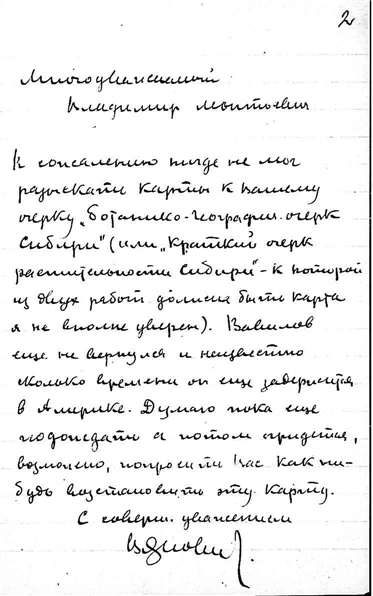 2
Многоуважаемый
Владимир Леонтьевич
К сожалению нигде не мог
разыскать карты к Вашему
очерку „Ботанико-географич. очерк
Сибири" (или „Краткий очерк
растительности Сибири" - к которой
из двух работ должна быть карта
я не вполне уверен). Вавилов
еще не вернулся и неизвестно
сколько времени он еще задержится
в Америке. Думаю пока еще
подождать а потом придется,
возможно, попросить Вас как ни-
будь возстановить эту карту.
С соверш. уважением